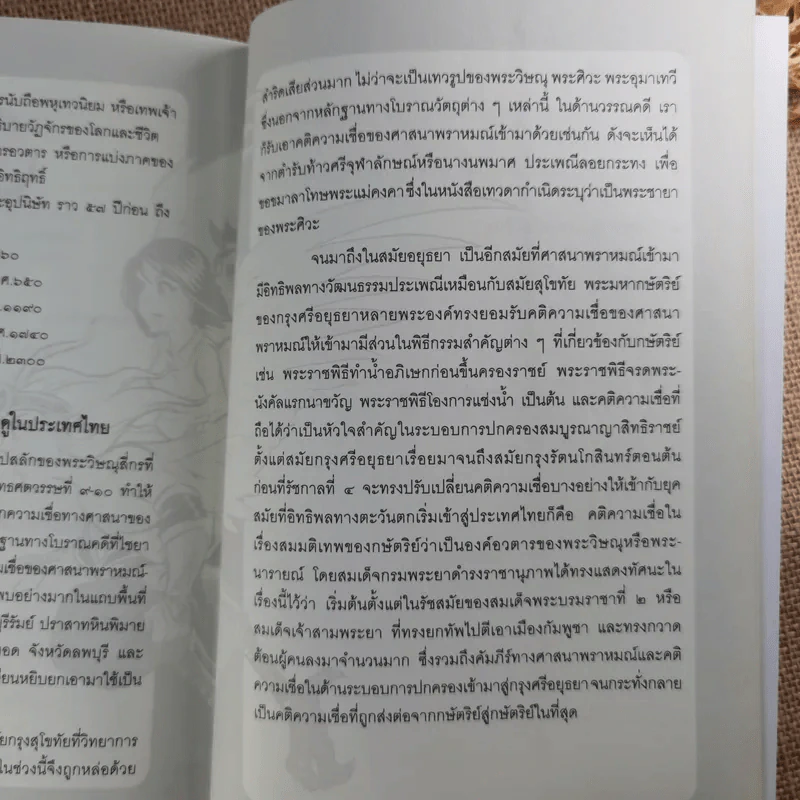 รนับถือพหุเทวนิยม หรือเทพเจ้า
ธิบายวัฏจักรของโลกและชีวิต
รอวตาร หรือการแบ่งภาคของ
อิทธิฤทธิ์
ะอุปนิษัท ราว ๕๗ ปีก่อน ถึง
๖๐
ศ.๖๕๐
.๑๑๙๐
ศ.๑๗๔๐
.๒๓๐๐
ดูในประเทศไทย
ปสลักของพระวิษณุสี่กรที่
ทธศตวรรษที่ ๙-๑๐ ทำให้
กความเชื่อทางศาสนาของ
ฐานทางโบราณคดีที่ไชยา
มเชื่อของศาสนาพราหมณ์-
พบอย่างมากในแถบพื้นที่
บุรีรัมย์ ปราสาทหินพิมาย
ยอด จังหวัดลพบุรี และ
ขียนหยิบยกเอามาใช้เป็น
ัยกรุงสุโขทัยที่วิทยาการ
ในช่วงนี้จึงถูกหล่อด้วย
สำริดเสียส่วนมาก ไม่ว่าจะเป็นเทวรูปของพระวิษณุ พระศิวะ พระอุมาเทวี
ซึ่งนอกจากหลักฐานทางโบราณวัตถุต่าง ๆ เหล่านี้ ในด้านวรรณคดี เรา
ก็รับเอาคติความเชื่อของศาสนาพราหมณ์เข้ามาด้วยเช่นกัน ดังจะเห็นได้
จากตำรับท้าวศรีจุฬาลักษณ์หรือนางนพมาศ ประเพณีลอยกระทง เพื่อ
ขอขมาลาโทษพระแม่คงคา ซึ่งในหนังสือเทวดากำเนิดระบุว่าเป็นพระชายา
ของพระศิวะ
จนมาถึงในสมัยอยุธยา เป็นอีกสมัยที่ศาสนาพราหมณ์เข้ามา
มีอิทธิพลทางวัฒนธรรมประเพณีเหมือนกับสมัยสุโขทัย พระมหากษัตริย์
ของกรุงศรีอยุธยาหลายพระองค์ทรงยอมรับคติความเชื่อของศาสนา
พราหมณ์ให้เข้ามามีส่วนในพิธีกรรมสำคัญต่าง ๆ ที่เกี่ยวข้องกับกษัตริย์
เช่น พระราชพิธีทำน้ำอภิเษกก่อนขึ้นครองราชย์ พระราชพิธีจรดพระ-
นังคัลแรกนาขวัญ พระราชพิธีโองการแช่งน้ำ เป็นต้น และคติความเชื่อที่
ถือได้ว่าเป็นหัวใจสำคัญในระบอบการปกครองสมบูรณาญาสิทธิราชย์
ตั้งแต่สมัยกรุงศรีอยุธยาเรื่อยมาจนถึงสมัยกรุงรัตนโกสินทร์ตอนต้น
ก่อนที่รัชกาลที่ ๔ จะทรงปรับเปลี่ยนคติความเชื่อบางอย่างให้เข้ากับยุค
สมัยที่อิทธิพลทางตะวันตกเริ่มเข้าสู่ประเทศไทยก็คือ คติความเชื่อใน
เรื่องสมมติเทพของกษัตริย์ว่าเป็นองค์อวตารของพระวิษณุหรือพระ-
นารายณ์ โดยสมเด็จกรมพระยาดำรงราชานุภาพได้ทรงแสดงทัศนะใน
เรื่องนี้ไว้ว่า เริ่มต้นตั้งแต่ในรัชสมัยของสมเด็จพระบรมราชาที่ ๒ หรือ
สมเด็จเจ้าสามพระยา ที่ทรงยกทัพไปตีเอาเมืองกัมพูชา และทรงกวาด
ต้อนผู้คนลงมาจำนวนมาก ซึ่งรวมถึงคัมภีร์ทางศาสนาพราหมณ์และคติ
ความเชื่อในด้านระบอบการปกครองเข้ามาสู่กรุงศรีอยุธยา จนกระทั่งกลาย
เป็นคติความเชื่อที่ถูกส่งต่อจากกษัตริย์สู่กษัตริย์ในที่สุด